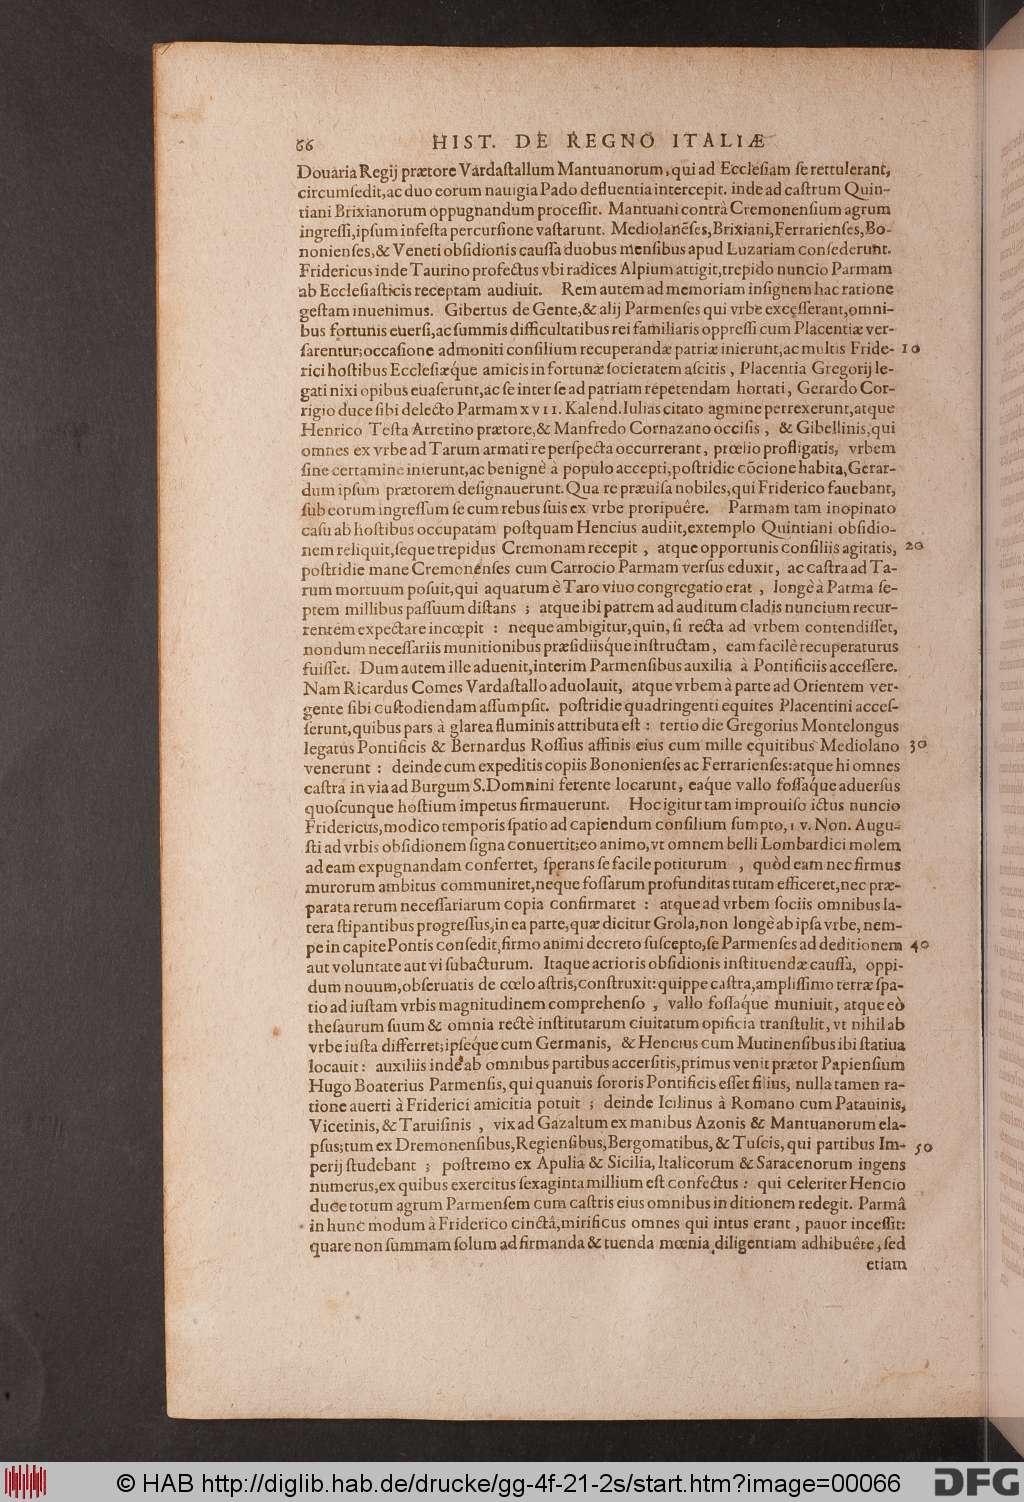 66 HIST. DE REGNO ITALIÆ
Douaria Regij prætore Vardaſtallum Mantuanorum, qui ad Eccleſiam ſe rettulerant,
circumſedit, ac duo eorum nauigia Pado defluentia intercepit. inde ad caſtrum Quin-
tiani Brixianorum oppugnandum proceſſit. Mantuani contrà Cremonenſium agrum
ingreſſi, ipſum infeſta percurſione vaſtarunt. Mediolanẽſes, Brixiani, Ferrarienſes, Bo-
nonienſes, & Veneti obſidionis cauſſa duobus menſibus apud Luzariam conſederunt.
Fridericus inde Taurino profectus vbi radices Alpium attigit, trepido nuncio Parmam
ab Eccleſiaſticis receptam audiuit. Rem autem ad memoriam inſignem hac ratione
geſtam inuenimus. Gibertus de Gente, & alij Parmenſes qui vrbe exceſſerant, omni-
bus fortunis euerſi, ac ſummis difficultatibus rei familiaris oppreſſi cum Placentiæ ver-
ſarentur; occaſione admoniti conſilium recuperandæ patriæ inierunt, ac multis Fride- 10
rici hoſtibus Eccleſiæque amicis in fortunæ ſocietatem aſcitis, Placentia Gregorij le-
gati nixi opibus euaſerunt, ac ſe inter ſe ad patriam repetendam hortati, Gerardo Cor-
rigio duce ſibi delecto Parmam xvii. Kalend. Iulias citato agmine perrexerunt, atque
Henrico Teſta Arretino prætore, & Manfredo Cornazano occiſis, & Gibellinis, qui
omnes ex vrbe ad Tarum armati re perſpecta occurrerant, prœlio profligatis, vrbem
ſine certamine inierunt, ac benignè à populo accepti, poſtridie cõcione habita, Gerar-
dum ipſum prætorem deſignauerunt. Qua re præuiſa nobiles, qui Friderico fauebant,
ſub eorum ingreſſum ſe cum rebus ſuis ex vrbe proripuêre. Parmam tam inopinato
caſu ab hoſtibus occupatam poſtquam Hencius audiit, extemplo Quintiani obſidio-
nem reliquit, ſeque trepidus Cremonam recepit, atque opportunis conſiliis agitatis, 20
poſtridie mane Cremonenſes cum Carrocio Parmam verſus eduxit, ac caſtra ad Ta-
rum mortuum poſuit, qui aquarum è Taro viuo congregatio erat, longè à Parma ſe-
ptem millibus paſſuum diſtans; atque ibi patrem ad auditum cladis nuncium recur-
rentem expectare incœpit: neque ambigitur, quin, ſi recta ad vrbem contendiſſet,
nondum neceſſariis munitionibus præſidiisq́ue inſtructam, eam facilè recuperaturus
fuiſſet. Dum autem ille aduenit, interim Parmenſibus auxilia à Pontificiis acceſſere.
Nam Ricardus Comes Vardaſtallo aduolauit, atque vrbem à parte ad Orientem ver-
gente ſibi cuſtodiendam aſſumpſit. poſtridie quadringenti equites Placentini acceſ-
ſerunt, quibus pars à glarea fluminis attributa eſt: tertio die Gregorius Montelongus
legatus Pontificis & Bernardus Roſſius affinis eius cum mille equitibus Mediolano 30
venerunt: deinde cum expeditis copiis Bononienſes ac Ferrarienſes: atque hi omnes
caſtra in via ad Burgum S. Domnini ferente locarunt, eaq́ue vallo foſſaq́ue aduerſus
quoſcunque hoſtium impetus firmauerunt. Hoc igitur tam improuiſo ictus nuncio
Fridericus, modico temporis ſpatio ad capiendum conſilium ſumpto, iv. Non. Augu-
ſti ad vrbis obſidionem ſigna conuertit; eo animo, vt omnem belli Lombardici molem
ad eam expugnandam conferret, ſperans ſe facile potiturum, quòd eam nec firmus
murorum ambitus communiret, neque foſſarum profunditas tutam efficeret, nec præ-
parata rerum neceſſariarum copia confirmaret: atque ad vrbem ſociis omnibus la-
tera ſtipantibus progreſſus, in ea parte, quæ dicitur Grola, non longè ab ipſa vrbe, nem-
pe in capite Pontis conſedit, firmo animi decreto ſuſcepto, ſe Parmenſes ad deditionem 40
aut voluntate aut vi ſubacturum. Itaque acrioris obſidionis inſtituendæ cauſſa, oppi-
dum nouum, obſeruatis de cœlo aſtris, conſtruxit: quippe caſtra, ampliſſimo terræ ſpa-
tio ad iuſtam vrbis magnitudinem comprehenſo, vallo foſſaq́ue muniuit, atque eò
theſaurum ſuum & omnia rectè inſtitutarum ciuitatum opificia tranſtulit, vt nihil ab
vrbe iuſta differret; ipſeq́ue cum Germanis, & Hencius cum Mutinenſibus ibi ſtatiua
locauit: auxiliis inde ab omnibus partibus accerſitis, primus venit prætor Papienſium
Hugo Boaterius Parmenſis, qui quanuis ſororis Pontificis eſſet filius, nulla tamen ra-
tione auerti à Friderici amicitia potuit; deinde Icilinus à Romano cum Patauinis,
Vicetinis, & Taruiſinis, vix ad Gazaltum ex manibus Azonis & Mantuanorum ela-
pſus; tum ex Dremonenſibus, Regienſibus, Bergomatibus, & Tuſcis, qui partibus Im- 50
perij ſtudebant; poſtremo ex Apulia & Sicilia, Italicorum & Saracenorum ingens
numerus, ex quibus exercitus ſexaginta millium eſt confectus: qui celeriter Hencio
duce totum agrum Parmenſem cum caſtris eius omnibus in ditionem redegit. Parmâ
in hunc modum à Friderico cinctâ, mirificus omnes qui intus erant, pauor inceſſit:
quare non ſummam ſolum ad firmanda & tuenda mœnia diligentiam adhibuêre, ſed
etiam
© HAB http://diglib.hab.de/drucke/gg-4f-21-2s/start.htm?image=00066
DFG